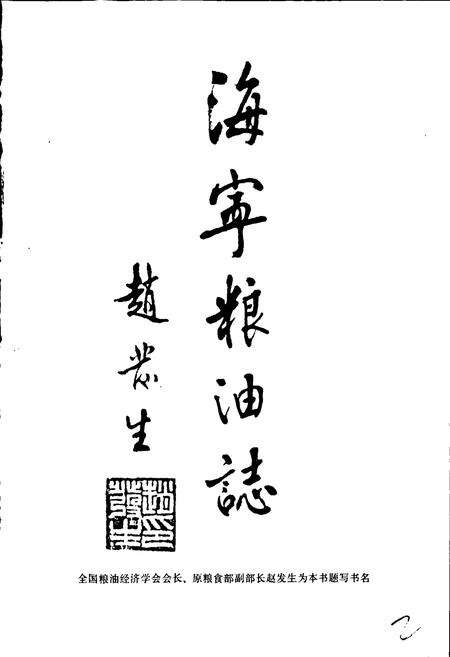 海寧粮油誌
趙发生
全国粮油经济学会会长、原粮食部副部长赵发生为本书题写书名